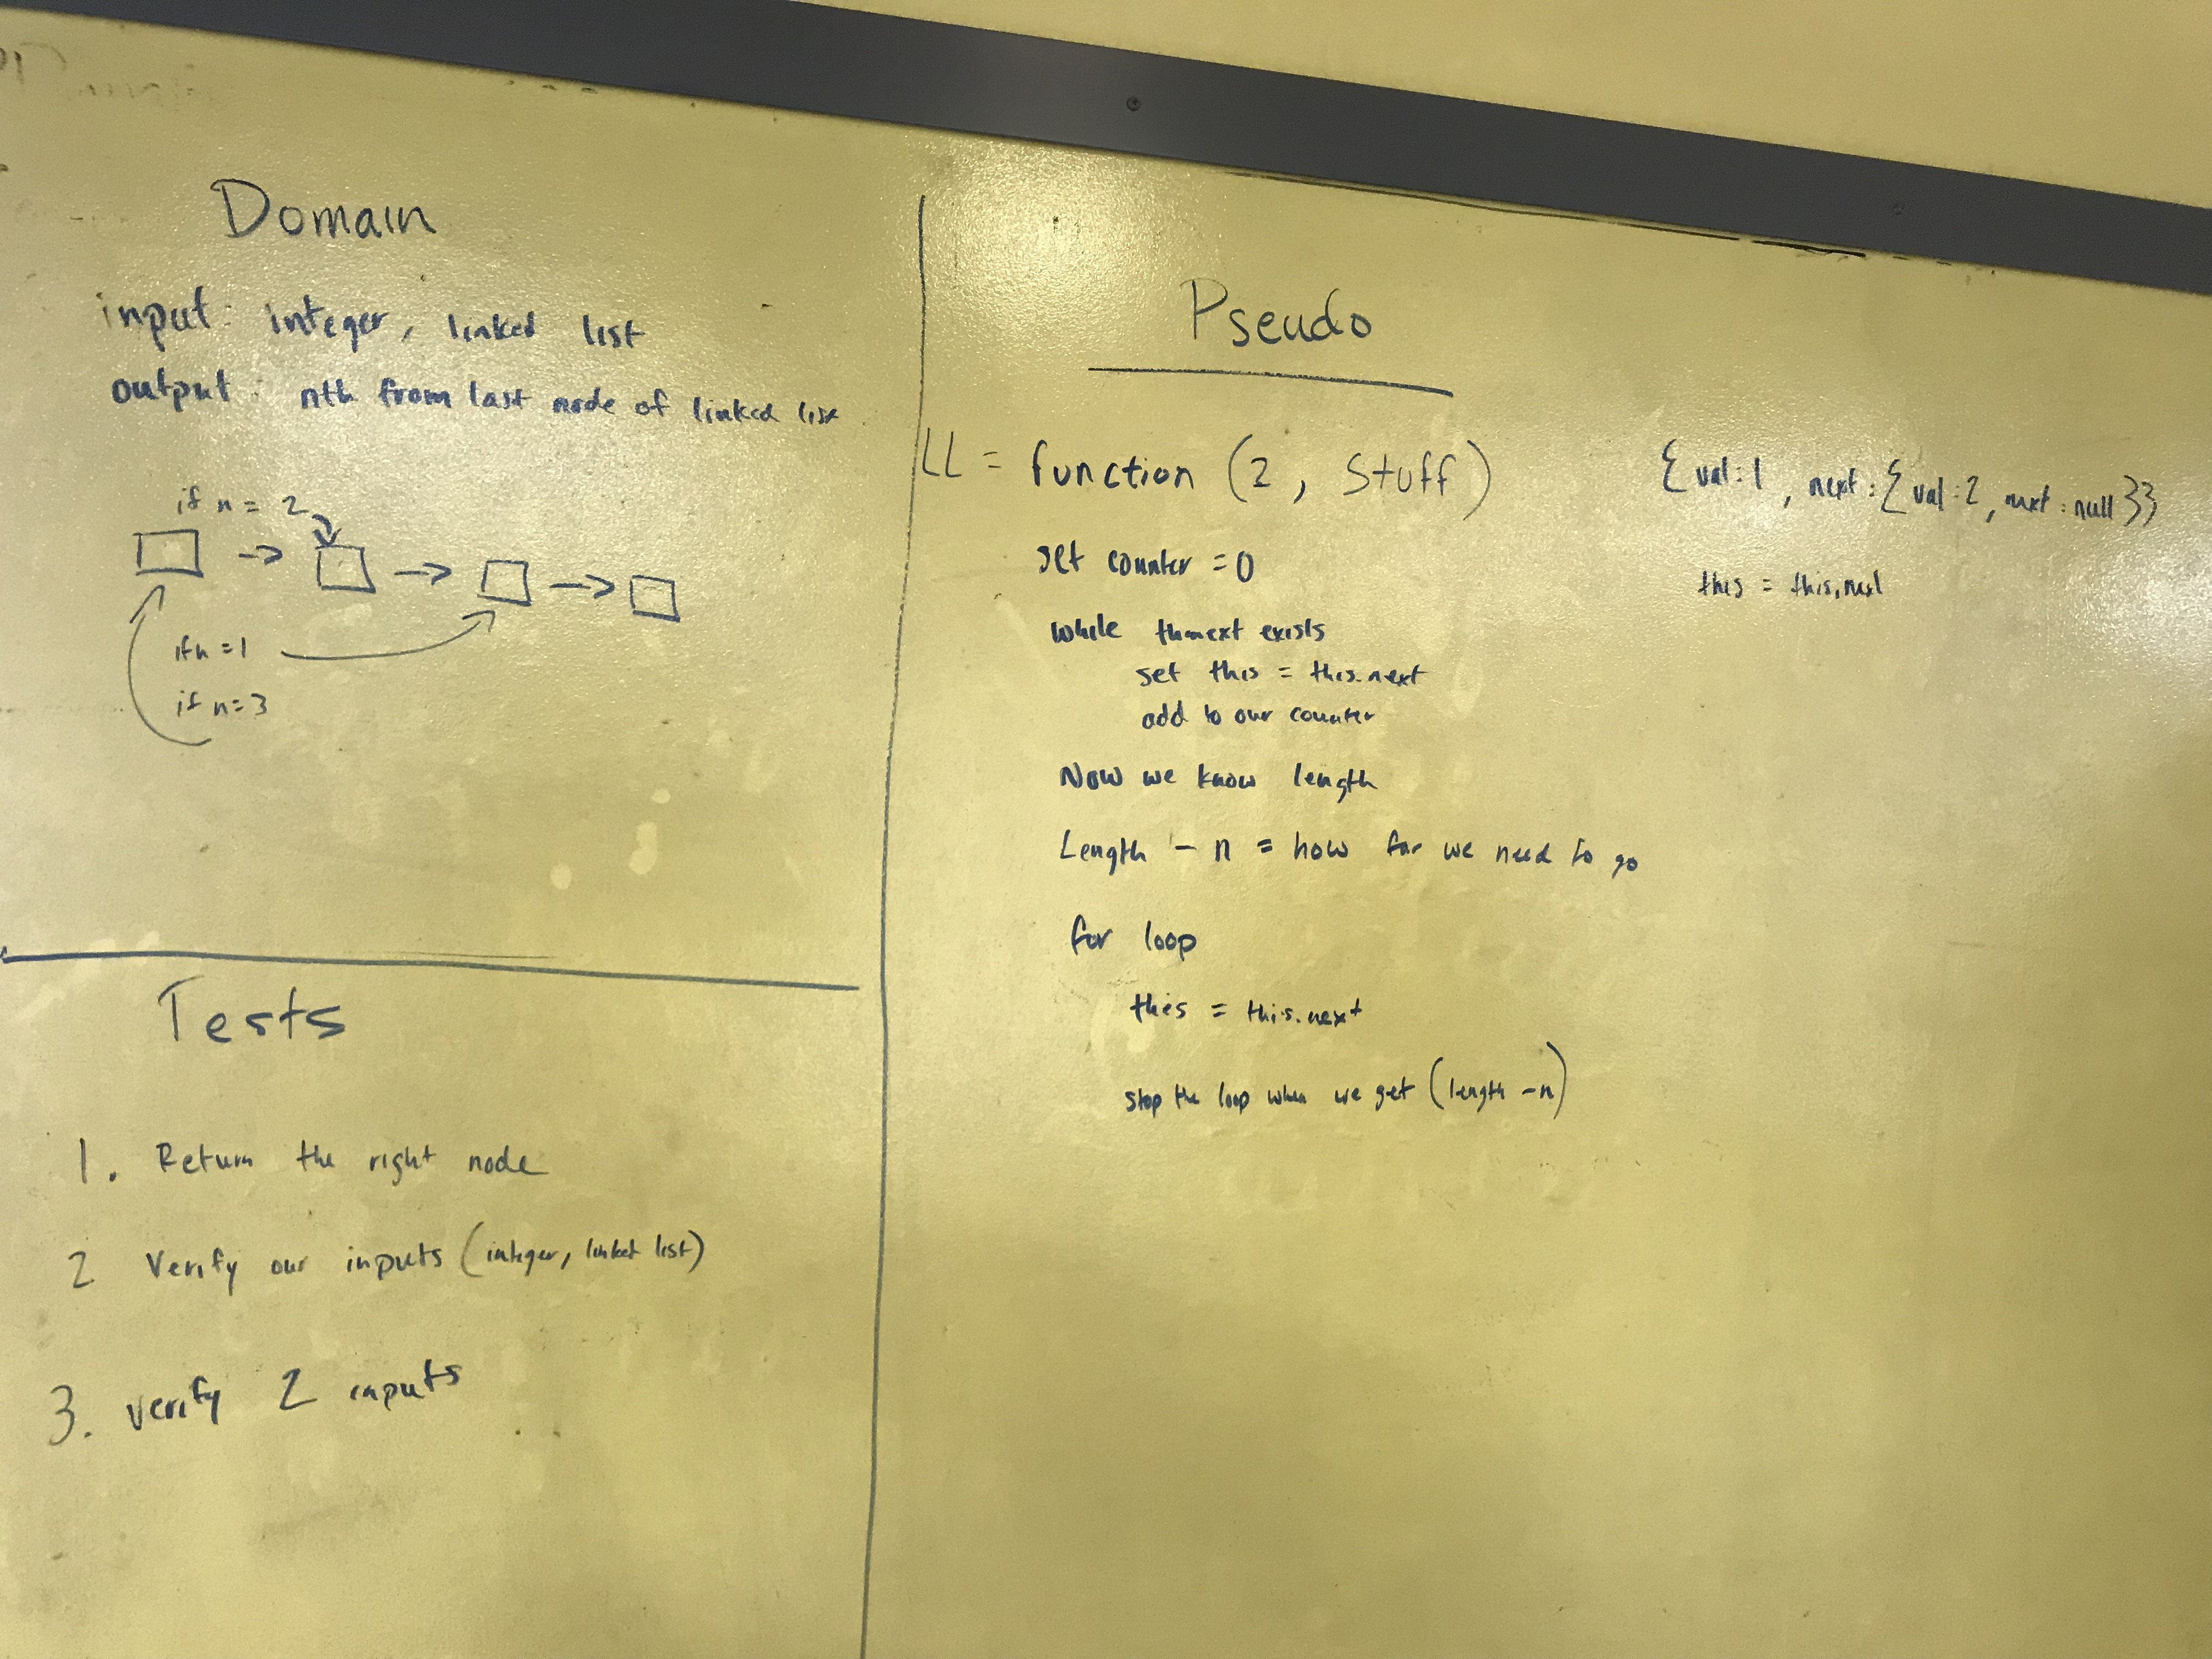 Domain
input: integer, linked list
output: nth from last node of linked list
if n = 2
if n = 1
if n = 3
Tests
1. Return the right node
2 Verify our inputs (integer, linked list)
3. verify 2 inputs
Pseudo
LL = function (2, Stuff)
{val:1, next:{val:2, next:null}}
set counter = 0
this = this.next
while next exists
set this = this.next
add to our counter
Now we know length
Length - n = how far we need to go
for loop
this = this.next
stop the loop when we get (length - n)